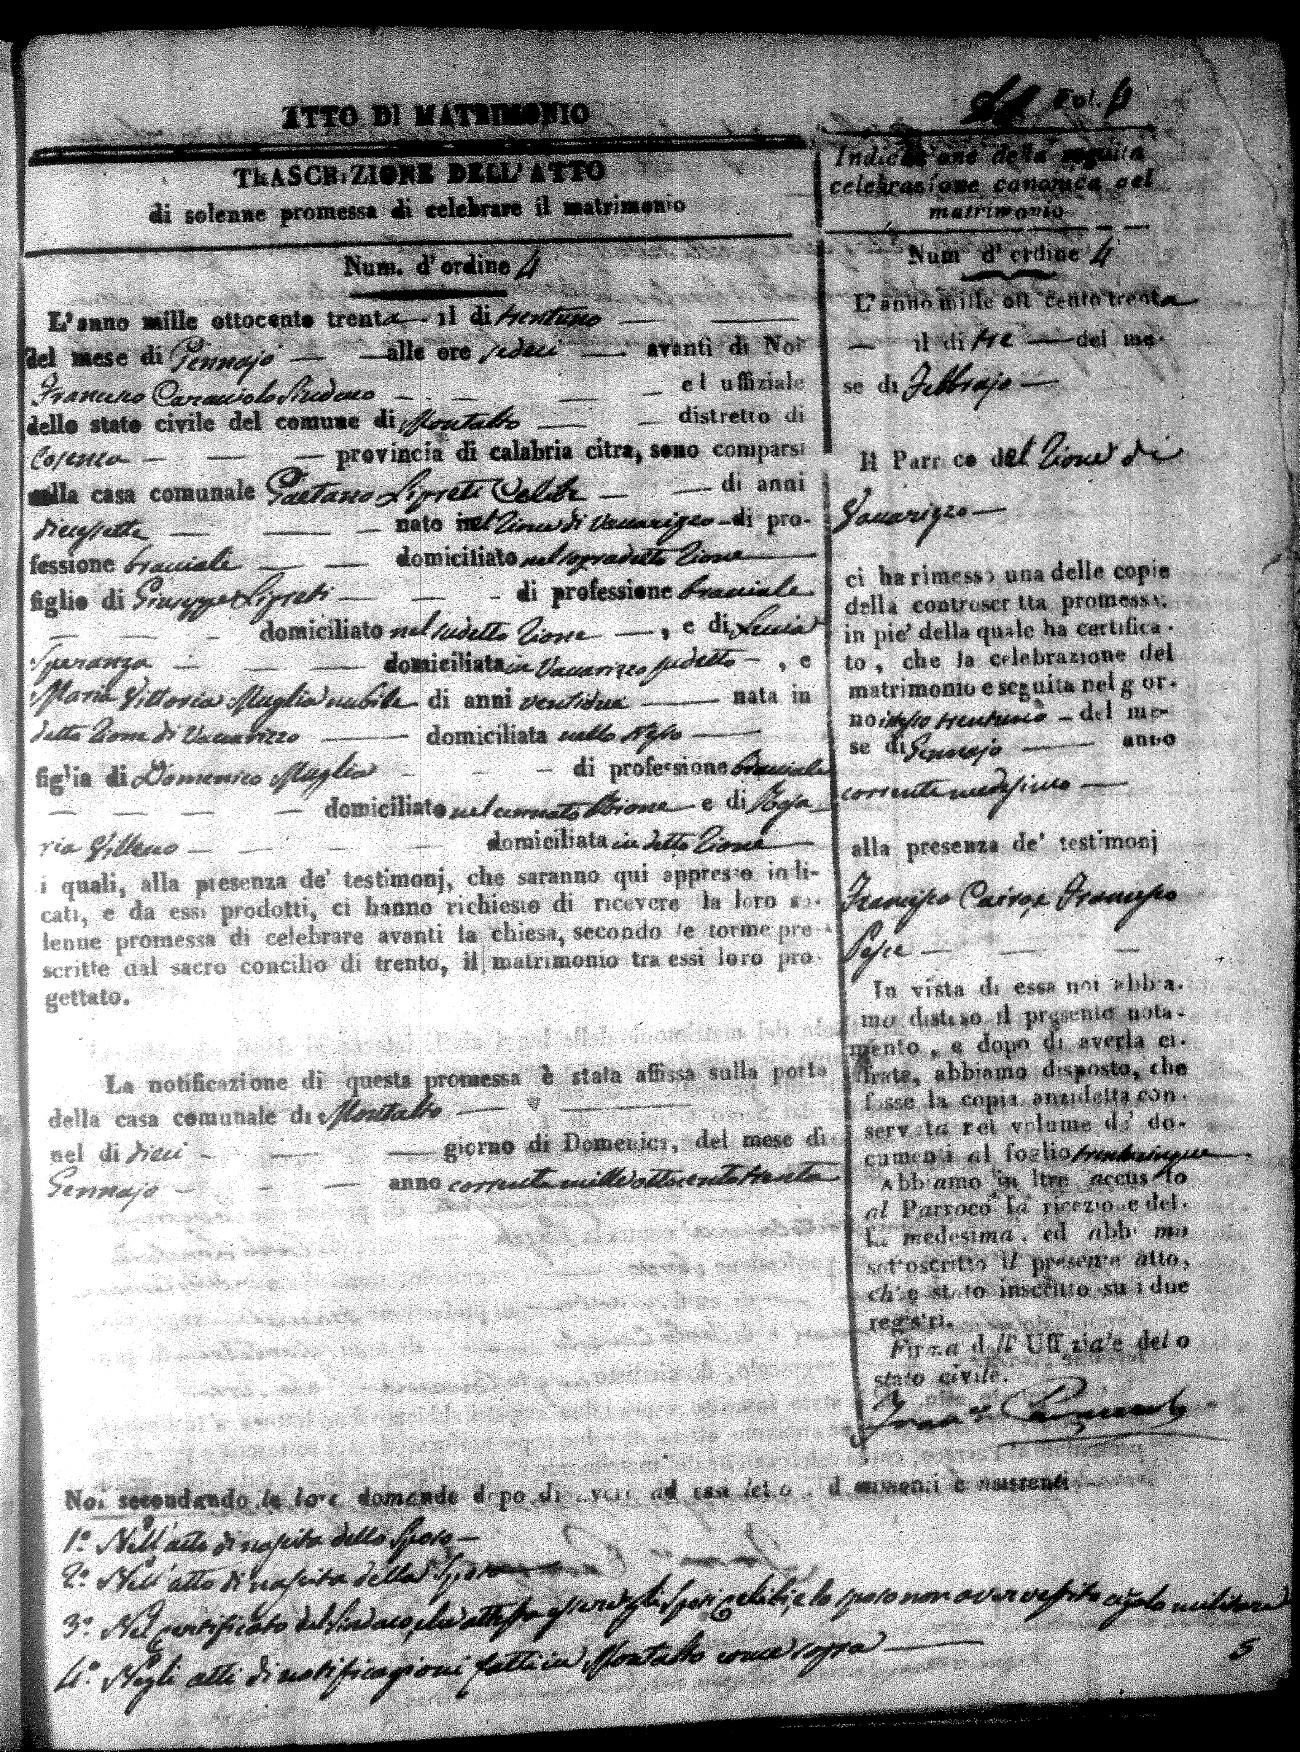 ATTO DI MATRIMONIO
TRASCRIZIONE DELL'ATTO
di solenne promessa di celebrare il matrimonio
Num. d'ordine 4
L'anno mille ottocento trenta il di trentuno
del mese di Gennajo alle ore sedeci avanti di Noi
Francesco Caracciolo Sindaco ed uffiziale
dello stato civile del comune di Montalto distretto di
Cosenza provincia di calabria citra, sono comparsi
nella casa comunale Gaetano Lipreti Celibe di anni
diecessette nato nel Rione di Vaccarizzo di pro-
fessione bracciale domiciliato nel sopradetto Rione
figlio di Giuseppe Lipreti di professione bracciale
domiciliato nel sudetto Rione , e di Lucia
Speranza domiciliata in Vaccarizzo sudetto , e
Maria Vittoria Muglia nubile di anni ventidue nata in
detto Rione di Vaccarizzo domiciliata nello stesso
figlia di Domenico Muglia di professione bracciale
domiciliato nel cennato Rione e di Rosa
ria domiciliata in detto Rione
i quali, alla presenza de' testimonj, che saranno qui appresso indi-
cati, e da essi prodotti, ci hanno richiesto di ricevere la loro so-
lenne promessa di celebrare avanti la chiesa, secondo le forme pre-
scritte dal sacro concilio di trento, il matrimonio tra essi loro pro-
gettato.
La notificazione di questa promessa è stata affissa sulla porta
della casa comunale di Montalto
nel di dieci giorno di Domenica, del mese di
Gennajo anno corrente mille ottocento trenta
Fol.
Indicazione della seguita
celebrazione canonica del
matrimonio
Num d'ordine 4
L'anno mille ott cento trenta
il di tre del me-
se di Febbrajo
Il Parroco del Rione di
Vaccarizzo
ci ha rimesso una delle copie
della controscritta promessa,
in pie' della quale ha certifica-
to, che la celebrazione del
matrimonio e seguita nel gior-
no istesso trentuno del me-
se di Gennajo anno
corrente medesimo
alla presenza de' testimonj
Francesco Cairo, e Francesco
Pesce
In vista di essa noi abbia-
mo disteso il presente nota-
mento, e dopo di averla ci-
frata, abbiamo disposto, che
fosse la copia anzidetta con-
servata nel volume de' do-
cumenti al foglio trentacinque
Abbiamo in ltre accusato
al Parroco la ricezione del-
la medesima, ed abbiamo
sottoscritto il presente atto,
ch'e stato inscritto su i due
registri.
Firma dell' Uffiziale dello
stato civile.
Noi secondando le loro domande dopo di aver ad essi letto documenti e nsistenti
1.° Nell'atto di nascita dello Sposo
2.° Nell'atto di nascita della Sposa
3.° Nel certificato del Sindaco, che attesta essere gli Sposi Celibi, e lo sposo non aver vestito militare
4.° Negli atti di notificazioni fatti in Montalto come sopra
5